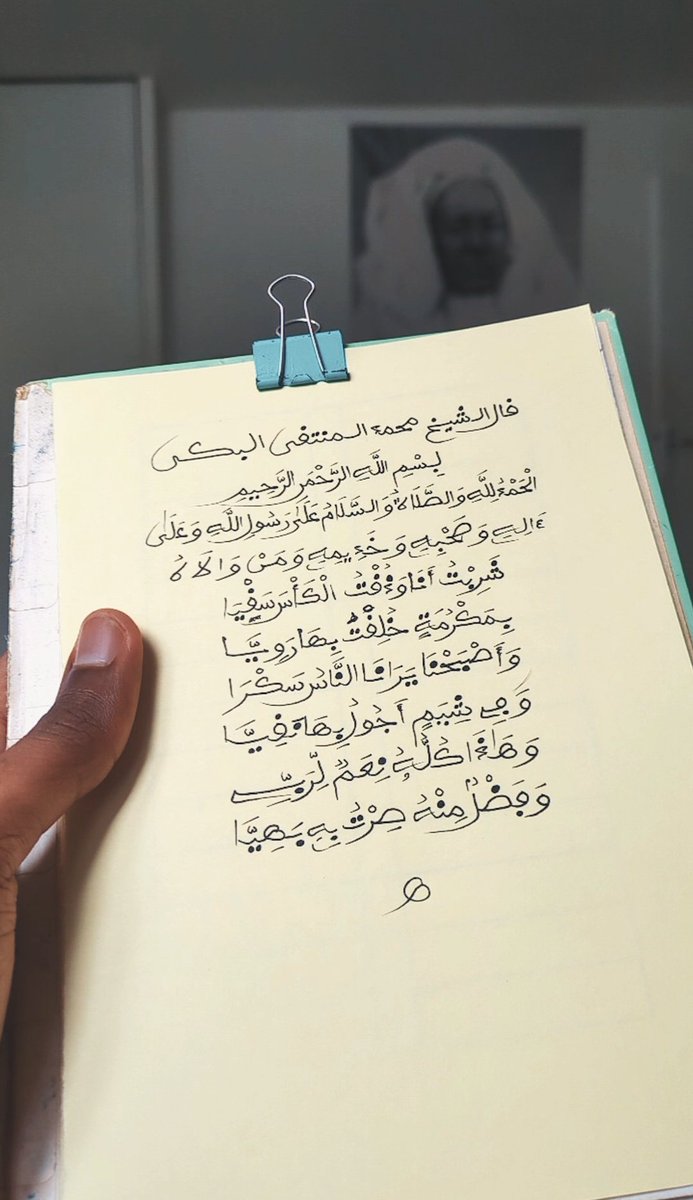 قال الشيخ محمد المنتقى البكي
بِسْمِ اللَّهِ الرَّحْمَٰنِ الرَّحِيمِ
الْحَمْدُ لِلَّهِ وَالصَّلَاةُ وَالسَّلَامُ عَلَىٰ رَسُولِ اللَّهِ وَعَلَىٰ
ءَالِهِ وَصَحْبِهِ وَخَدِيمِهِ وَمَنْ وَالَاهُ
شَرِبْتُ أَنَا وَذُقْتُ الْكَأْسَ سَقْيَا
بِمَكْرُمَةٍ خُلِقْتُ بِهَا رَوِيَّا
وَأَصْبَحْنَا يَرَانَا النَّاسُ سَكْرَا
وَفِي شِيَمٍ أَجُولُ بِهَا نَقِيَّا
وَهَاذَا كُلُّهُ نِعَمٌ لِّرَبِّي
وَفَضْلٌ مِنْهُ صِرْتُ بِهِ بَهِيَّا